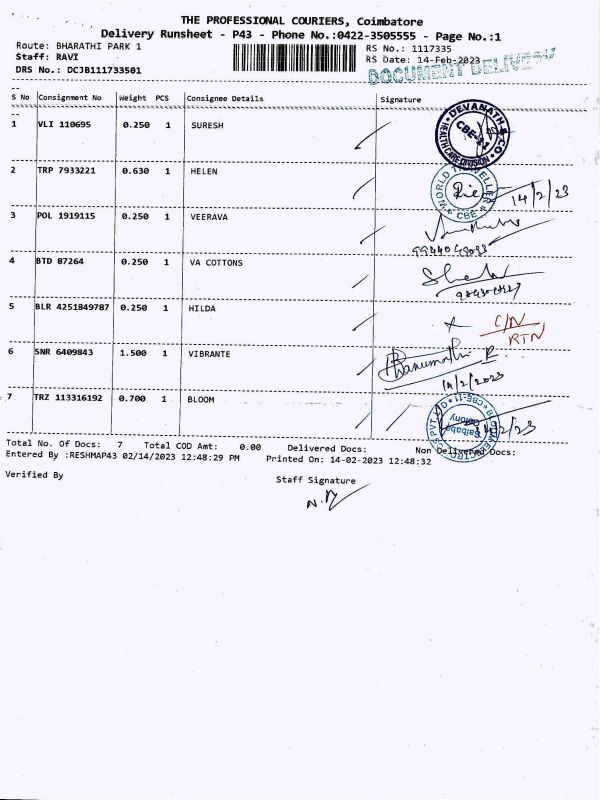 THE PROFESSIONAL COURIERS, Coimbatore
Delivery Runsheet - P43 - Phone No.:0422-3505555 - Page No.:1
Route: BHARATHI PARK 1
RS No.: 1117335
Staff: RAVI
RS Date: 14-Feb-2023
DRS No.: DCJB111733501
DOCUMENT DELIVERY
S No Consignment No Weight PCS Consignee Details Signature
1 VLI 110695 0.250 1 SURESH
DEVANATH & CO
HEALTH CARE DIVISION
CBE-11
2 TRP 7933221 0.630 1 HELEN
WORLD TRAVELLER
CBE
14/2/23
3 POL 1919115 0.250 1 VEERAVA
4 BTD 87264 0.250 1 VA COTTONS
5 BLR 4251849787 0.250 1 HILDA
C/N
RTN
6 SNR 6409843 1.500 1 VIBRANTE
Bhanumathi R
14/2/2023
7 TRZ 113316192 0.700 1 BLOOM
Saibaba
Colony
CBE-11
Total No. Of Docs: 7 Total COD Amt: 0.00 Delivered Docs: Non Delivered Docs:
Entered By :RESHMAP43 02/14/2023 12:48:29 PM Printed On: 14-02-2023 12:48:32
Verified By
Staff Signature